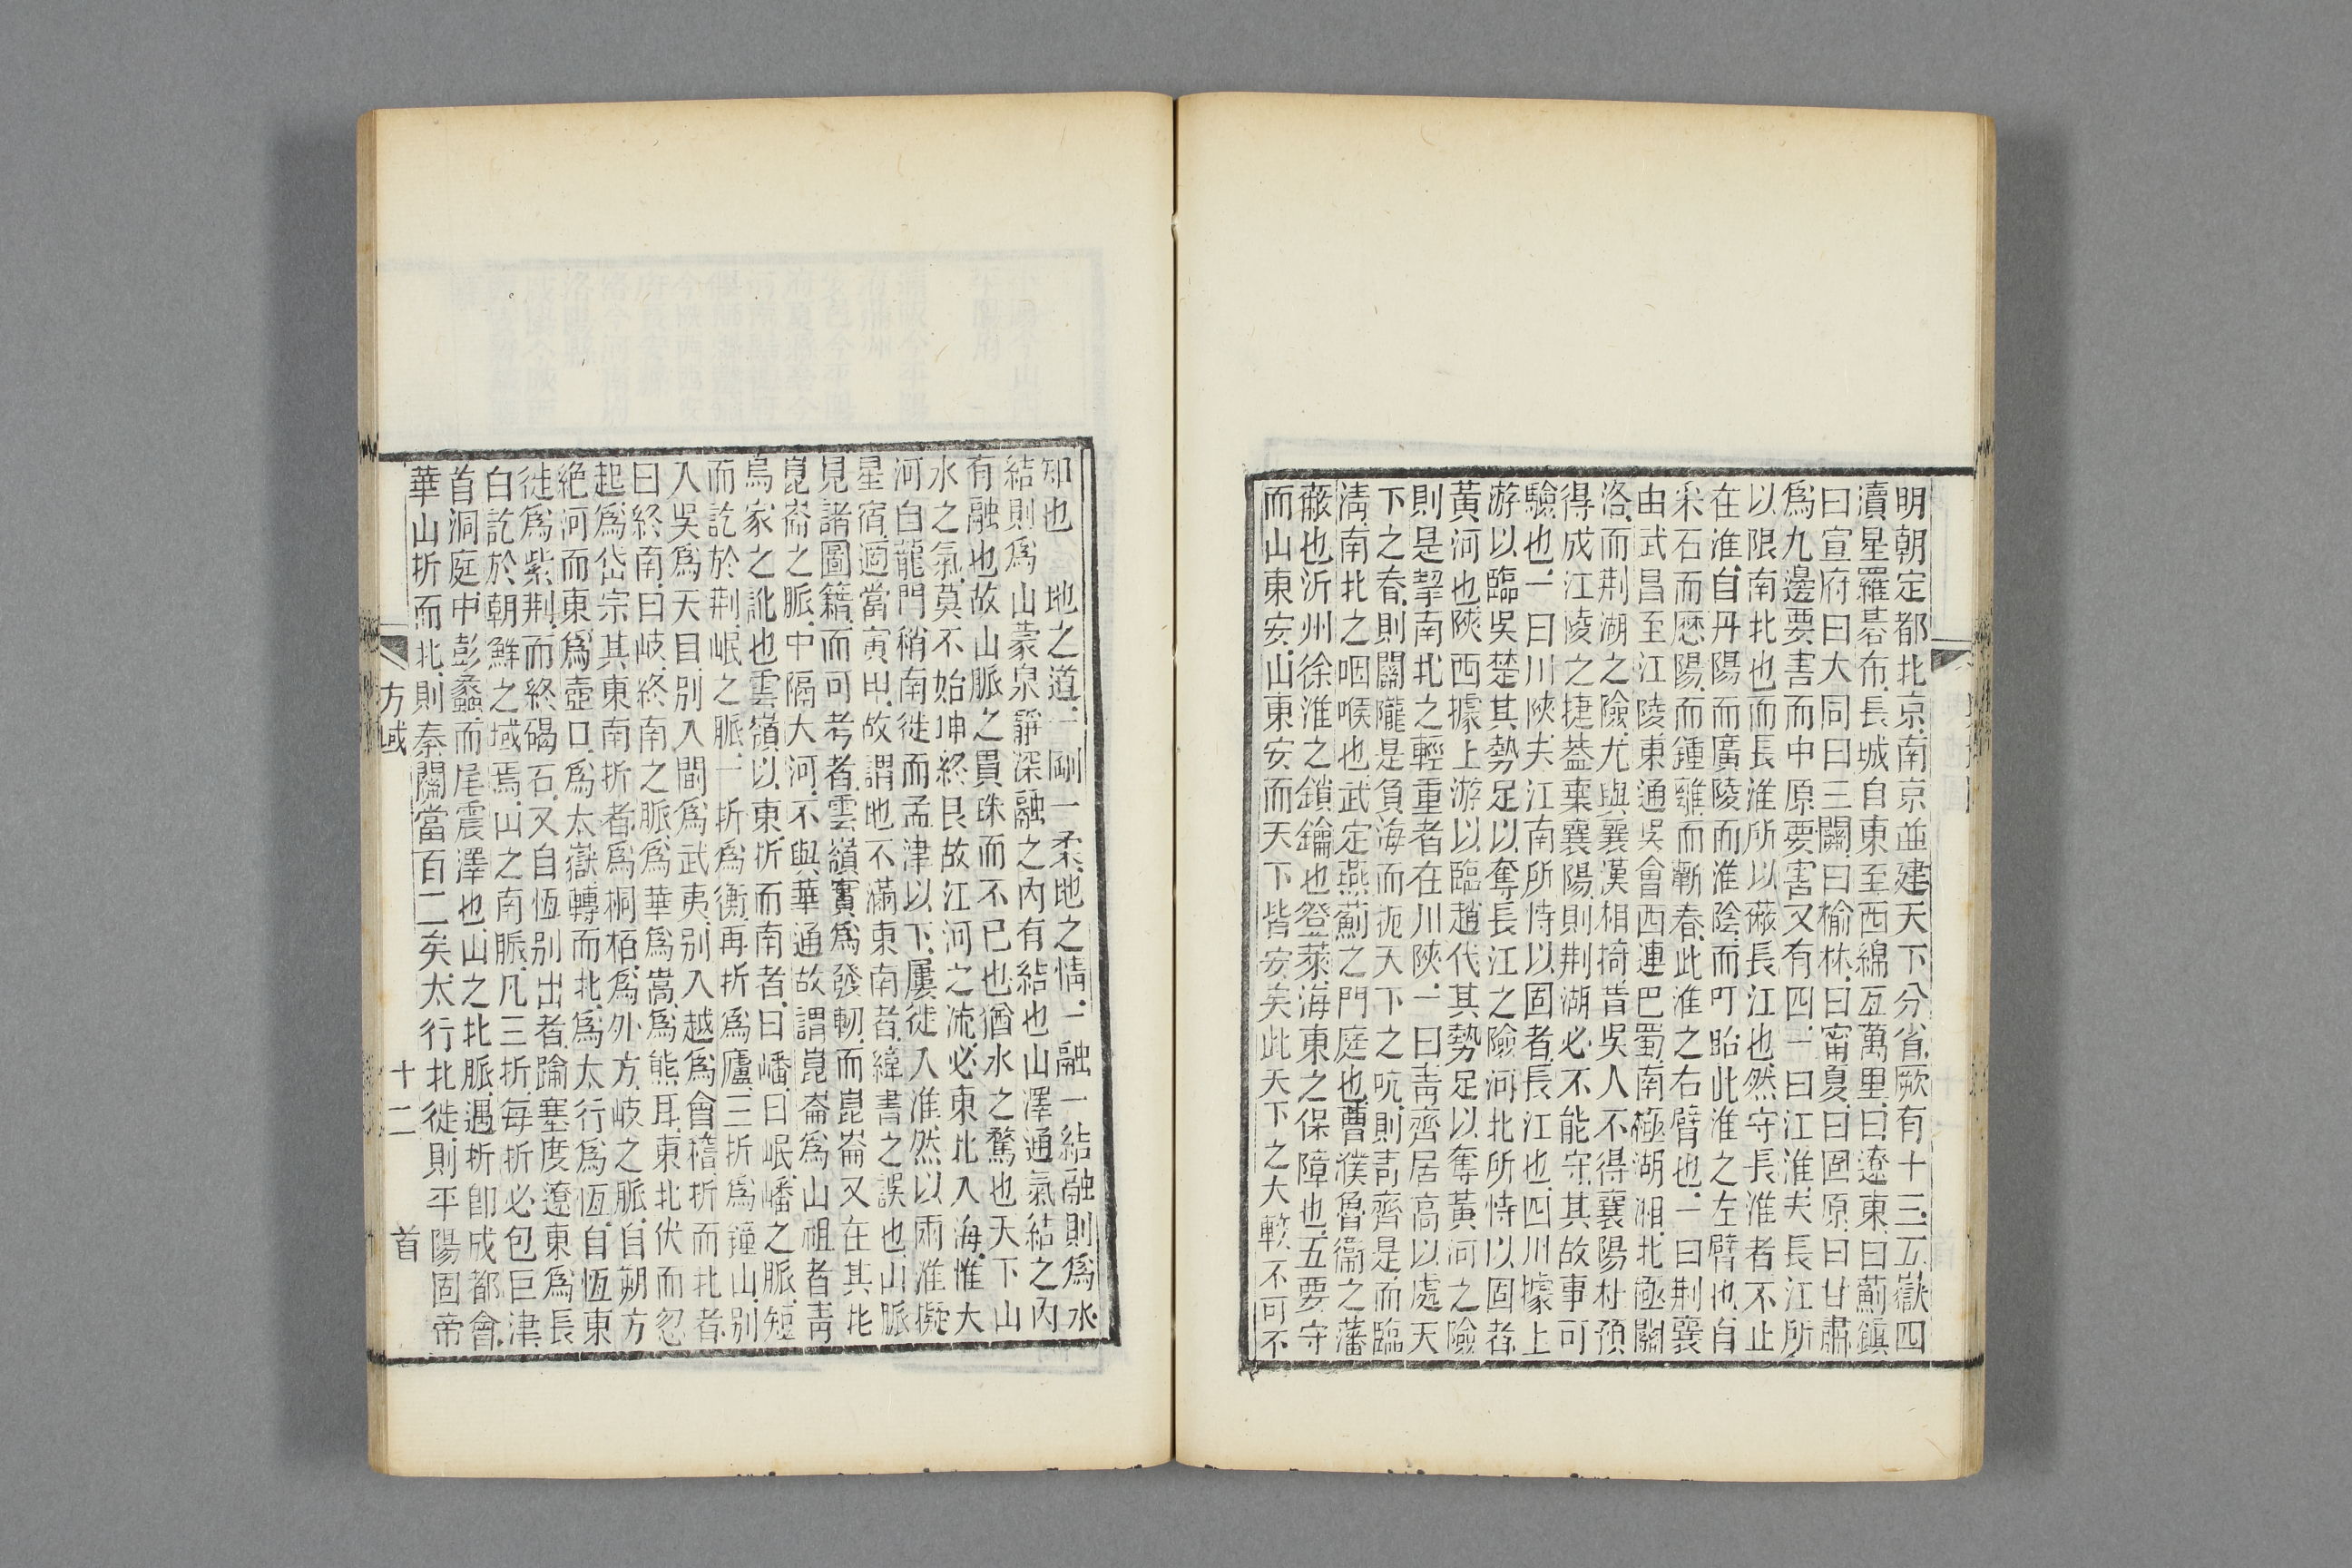 明朝定都北京南京並建天下分省厥有十三五嶽四
瀆星羅碁布長城自東至西綿亙萬里曰遼東曰薊鎭
曰宣府曰大同曰三關曰榆林曰甯夏曰固原曰甘肅
爲九邊要害而中原要害又有四一曰江淮夫長江所
以限南北也而長淮所以蔽長江也然守長淮者不止
在淮自丹陽而廣陵而淮陰而盱眙此淮之左臂也自
采石而歷陽而鍾離而蘄春此淮之右臂也一曰荆襄
由武昌至江陵東通吳會西連巴蜀南極湖湘北極關
洛而荆湖之險尤與襄漢相掎昔吳人不得襄陽杜預
得成江陵之捷葢棄襄陽則荆湖必不能守其故事可
驗也一曰川陝夫江南所恃以固者長江也四川據上
游以臨吳楚其勢足以奪長江之險河北所恃以固者
黃河也陝西據上游以臨趙代其勢足以奪黃河之險
則是挈南北之輕重者在川陝一曰靑齊居高以處天
下之脊則關隴是負海而扼天下之吭則靑齊是而臨
淸南北之咽喉也武定燕薊之門庭也曹濮魯衞之藩
蔽也沂州徐淮之鎖鑰也登萊海東之保障也五要守
而山東安山東安而天下皆安矣此天下之大較不可不
知也　地之道一剛一柔地之情一融一結融則爲水
結則爲山蒙泉靜深融之內有結也山澤通氣結之內
有融也故山脈之貫珠而不已也猶水之騖也天下山
水之氣莫不始坤終艮故江河之流必東北入海惟大
河白龍門稍南徙而孟津以下屢徙入淮然以兩淮擬
星宿適當寅甲故謂地不滿東南者緯書之誤也山脈
見諸圖籍而可考者雲嶺實爲發軔而崑崙又在其北
崑崙之脈中隔大河不與華通故謂崑崙爲山祖者靑
烏家之訛也雲嶺以東折而南者曰嶓曰岷嶓之脈短
而訖於荆岷之脈一折爲衡再折爲廬三折爲鐘山別
入吳爲天目別入閩爲武夷別入越爲會稽折而北者
曰終南曰岐終南之脈爲華爲嵩爲熊耳東北伏而忽
起爲岱宗其東南折者爲桐栢爲外方岐之脈自朔方
絶河而東爲壺口爲太嶽轉而北爲太行爲恆自恆東
徙爲紫荆而終碣石又自恆別出者踰塞度遼東爲長
白訖於朝鮮之域焉山之南脈凡三折每折必包巨津
首洞庭中彭蠡而尾震澤也山之北脈遇折卽成都會
華山折而北則秦關當百二矣太行北徙則平陽固帝
方域　十二　首